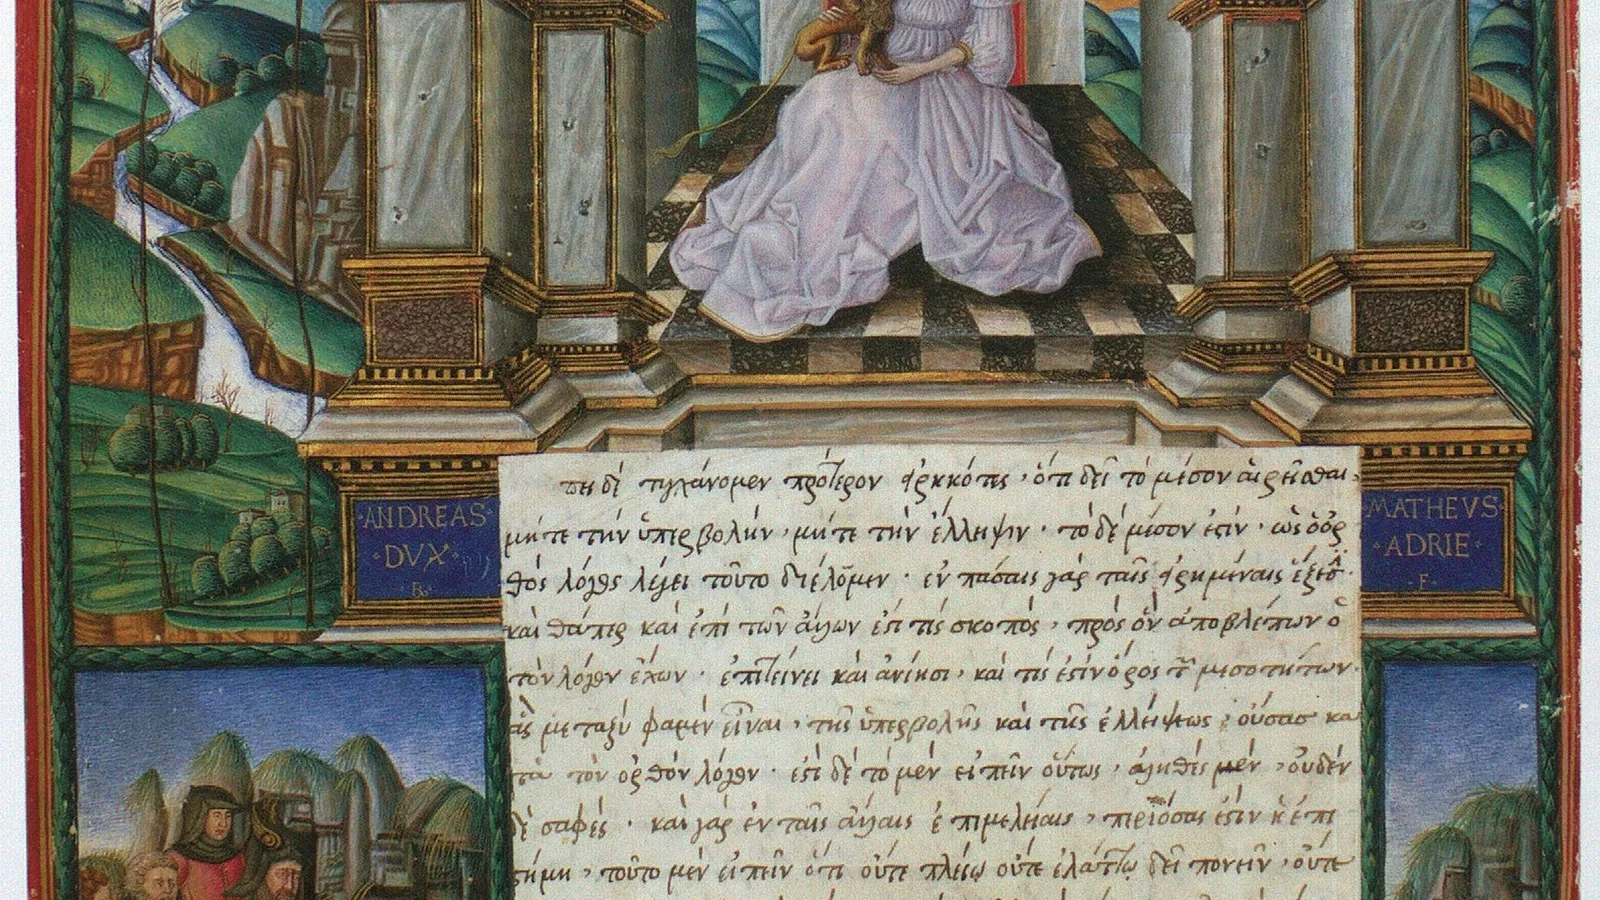 ANDREAS
DVX
MATHEVS
ADRIE
F
πει δὲ τυγχάνομεν πρότερον εἰρηκότες, ὅτι δεῖ τὸ μέσον αἱρεῖσθαι,
μήτε τὴν ὑπερβολὴν, μήτε τὴν ἔλλειψιν · τὸ δὲ μέσον ἐστὶν · ὡς ὁ ὀρ
θὸς λόγος λέγει τοῦτο διέλωμεν · ἐν πάσαις γὰρ ταῖς εἰρημέναις ἕξεσι ·
καὶ θάπερ καὶ ἐπὶ τῶν ἄλλων ἐστὶ τὶς σκοπὸς, πρὸς ὃν ἀποβλέπων ὁ
τὸν λόγον ἔχων · ἐπιτείνει καὶ ἀνίησι, καὶ τίς ἐστὶν ὅρος τῶν μεσοτήτων ·
ἃς μεταξὺ φαμὲν εἶναι, τῆς ὑπερβολῆς καὶ τῆς ἐλλείψεως, οὔσας κα
τὰ τὸν ὀρθὸν λόγον · ἐστὶ δὲ τὸ μὲν εἰπεῖν οὕτως, ἀληθὲς μὲν, οὐδὲν
δὲ σαφές · καὶ γὰρ ἐν ταῖς ἄλλαις ἐπιμελείαις, περὶ ὅσας ἐστὶν ἡ ἐπι
στήμη, τοῦτο μὲν εἰπεῖν ὅτι οὔτε πλείω οὔτε ἐλάττω δεῖ πονεῖν, οὔτε